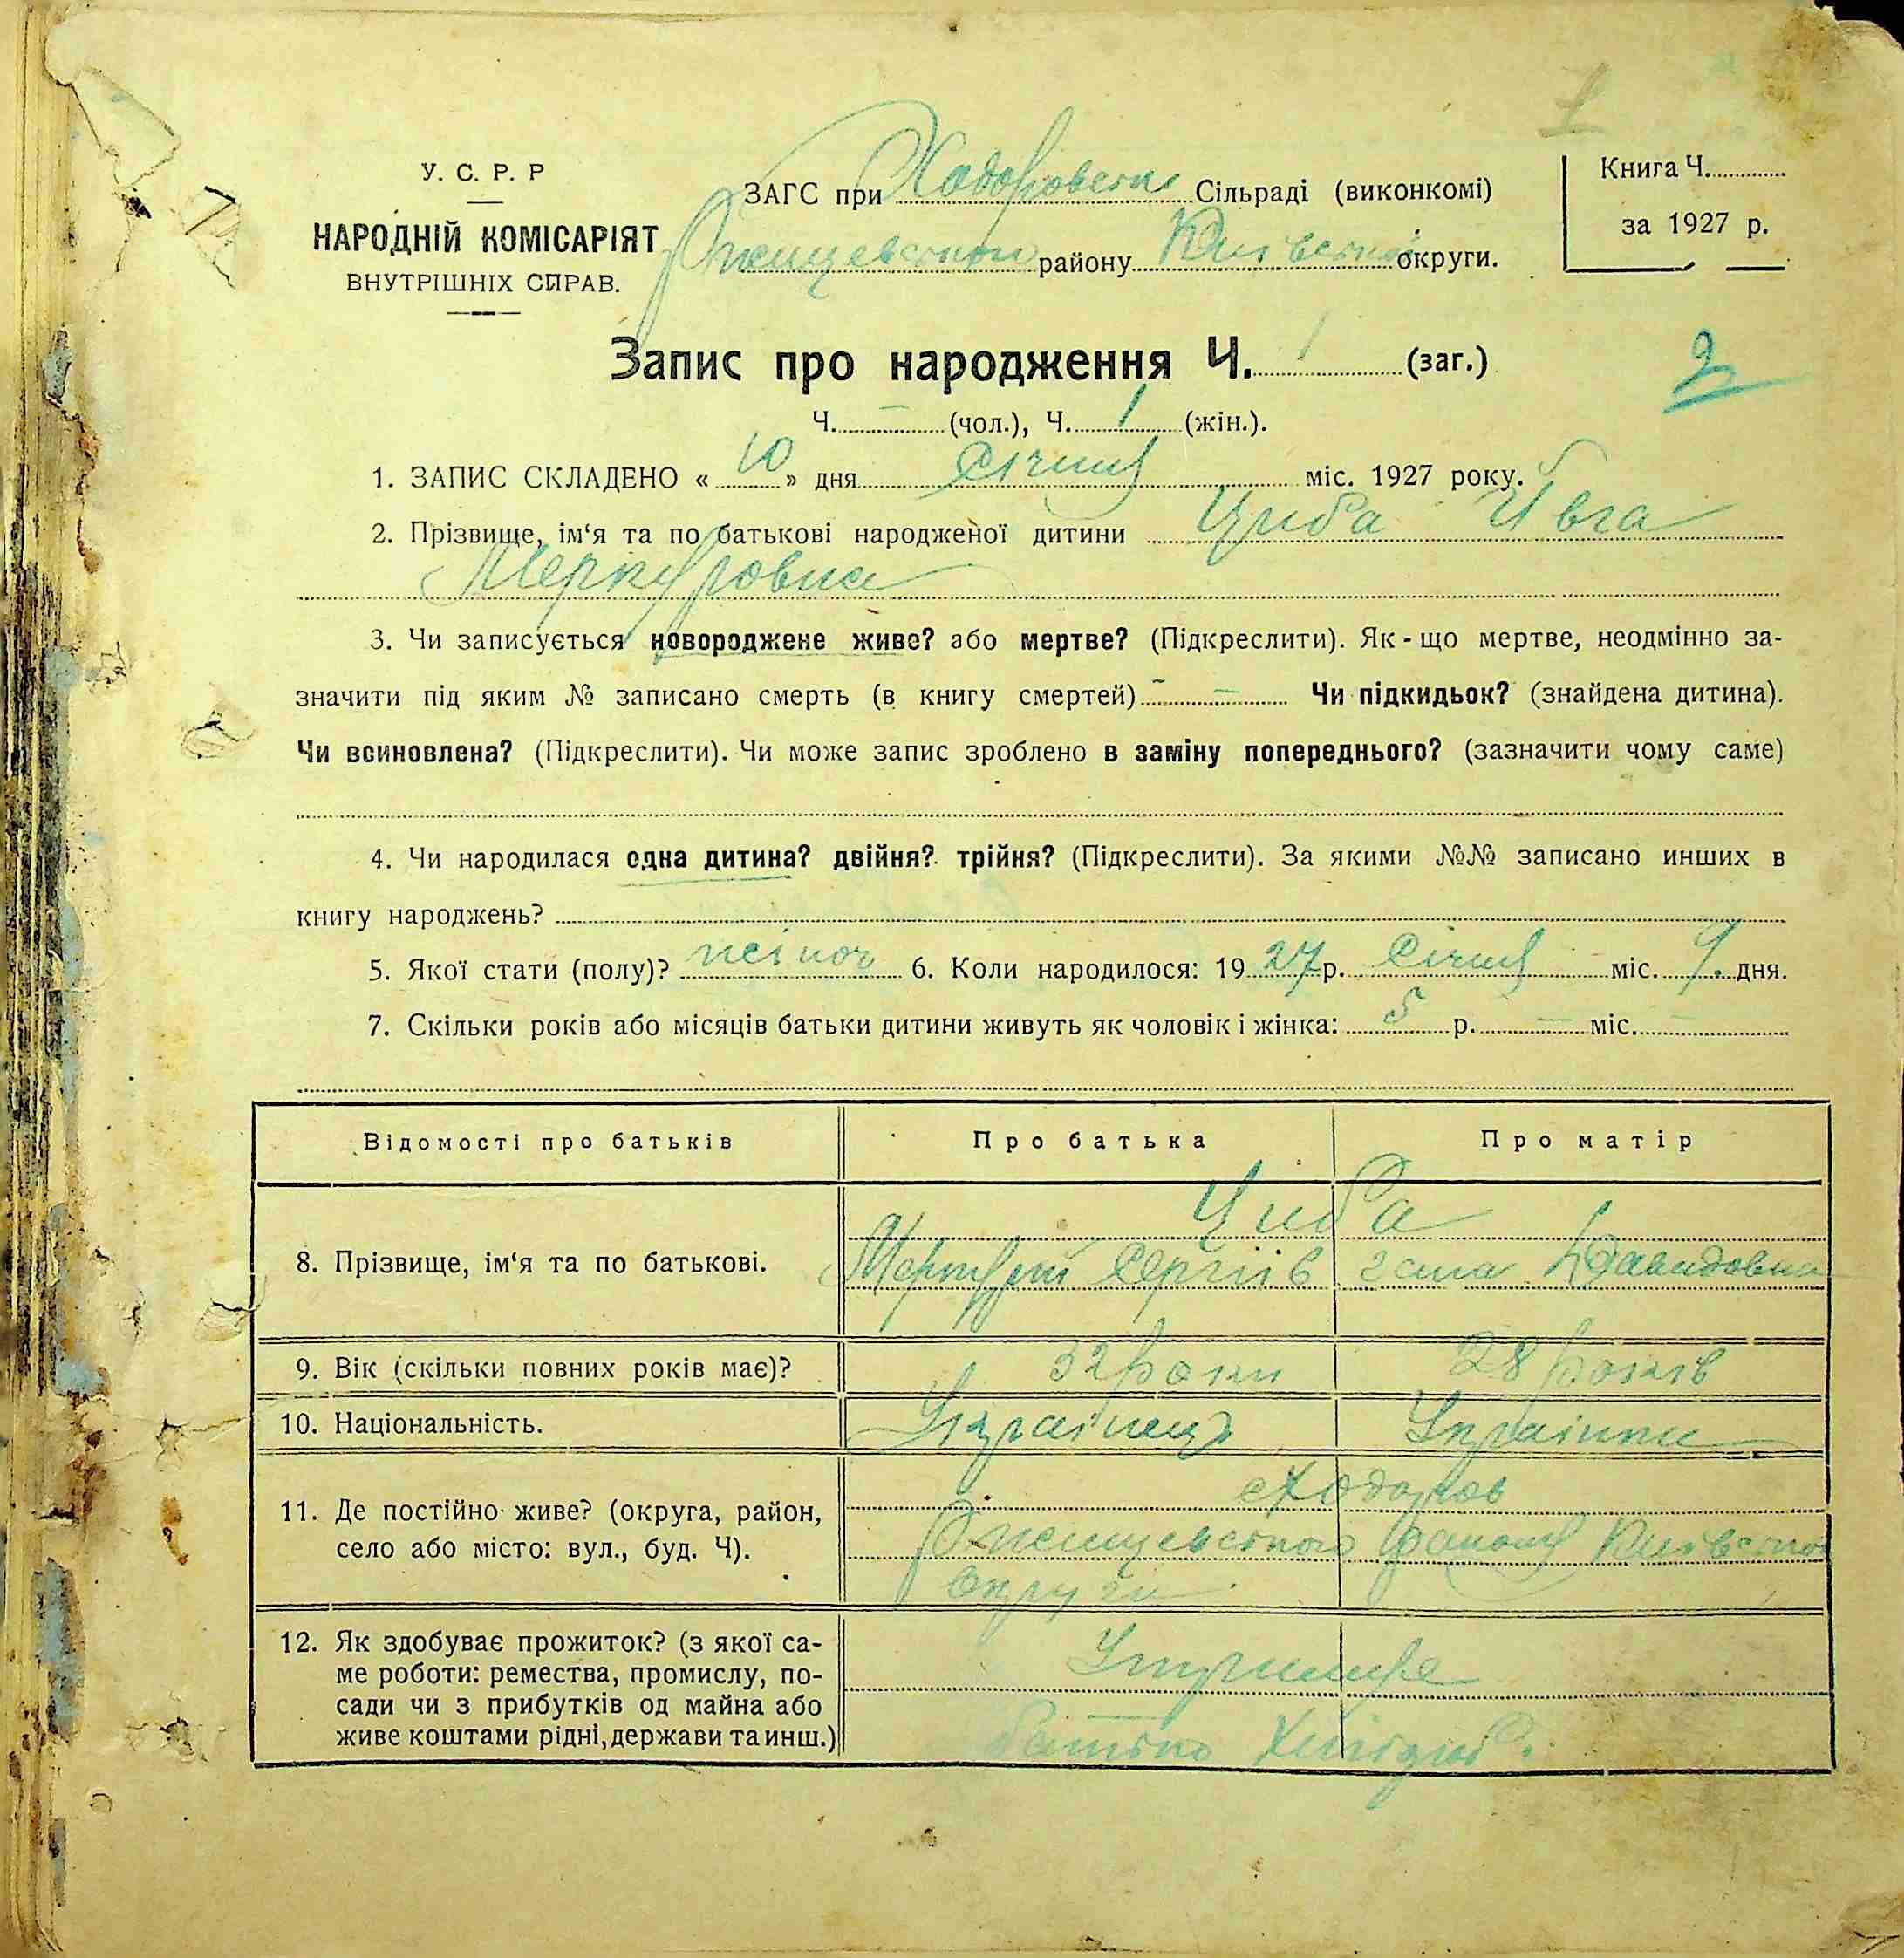 1
У. С. Р. Р
НАРОДНІЙ КОМІСАРІЯТ
ВНУТРІШНІХ СПРАВ.
ЗАГС при Ходоровском Сільраді (виконкомі)
Ржищевского району Київської округи.
Книга Ч.
за 1927 р.
Запис про народження Ч. 1 (заг.)
2
Ч. – (чол.), Ч. 1 (жін.).
1. ЗАПИС СКЛАДЕНО « 10 » дня Січня міс. 1927 року.
2. Прізвище, ім‘я та по батькові народженої дитини Циба Ивга
Меркуровна
3. Чи записується новороджене живе? або мертве? (Підкреслити). Як - що мертве, неодмінно за-
значити під яким № записано смерть (в книгу смертей) – – Чи підкидьок? (знайдена дитина).
Чи всиновлена? (Підкреслити). Чи може запис зроблено в заміну попереднього? (зазначити чому саме)
4. Чи народилася одна дитина? двійня? трійня? (Підкреслити). За якими №№ записано инших в
книгу народжень?
5. Якої стати (полу)? жіноч 6. Коли народилося: 19 27 р. Січня міс. 9. дня.
7. Скільки років або місяців батьки дитини живуть як чоловік і жінка: 5 р. – міс. –
Відомості про батьків Про батька Про матір
8. Прізвище, ім‘я та по батькові. Циба
Меркурій Сергіів Давидовна
9. Вік (скільки повних років має)? 32 роки 28 років
10. Національність. Українец Українка
11. Де постійно живе? (округа, район,
село або місто: вул., буд. Ч).
с Ходоров
Ржищевского району Київської
округи
12. Як здобуває прожиток? (з якої са-
ме роботи: ремества, промислу, по-
сади чи з прибутків од майна або
живе коштами рідні, держави та инш.)
Утримує
батько Хлібороб.